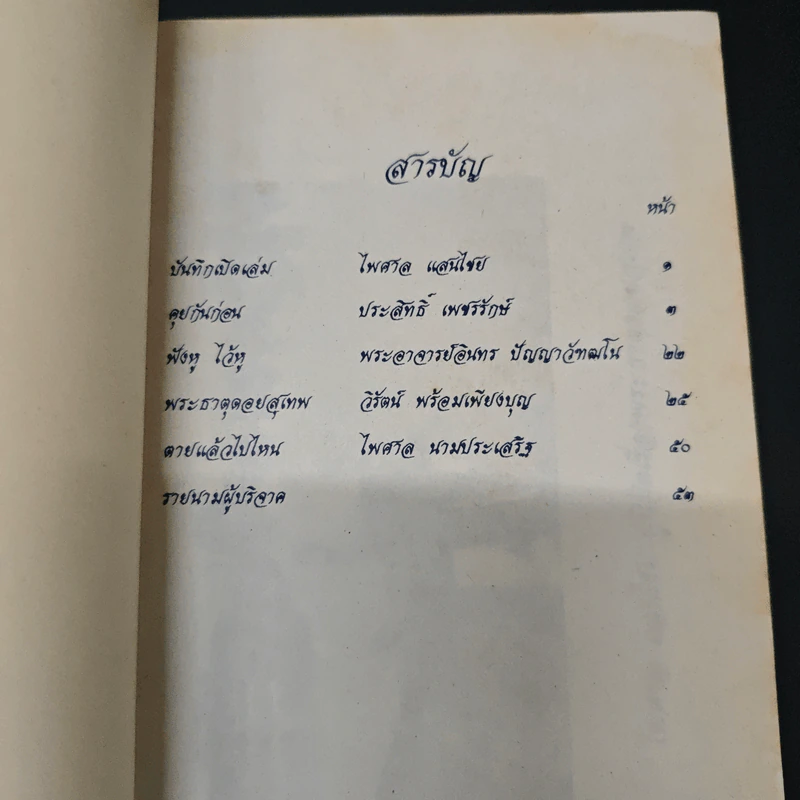 สารบัญ
หน้า
บันทึกเปิดเล่ม ไพศาล แสนไชย ๑
คุยกันก่อน ประสิทธิ์ เพชรรักษ์ ๓
ฟังหู ไว้หู พระอาจารย์อินทร ปัญญาวัฑฒโน ๒๒
พระธาตุดอยสุเทพ วิรัตน์ พร้อมเพียงบุญ ๒๕
ตายแล้วไปไหน ไพศาล นามประเสริฐ ๕๐
รายนามผู้บริจาค ๕๓